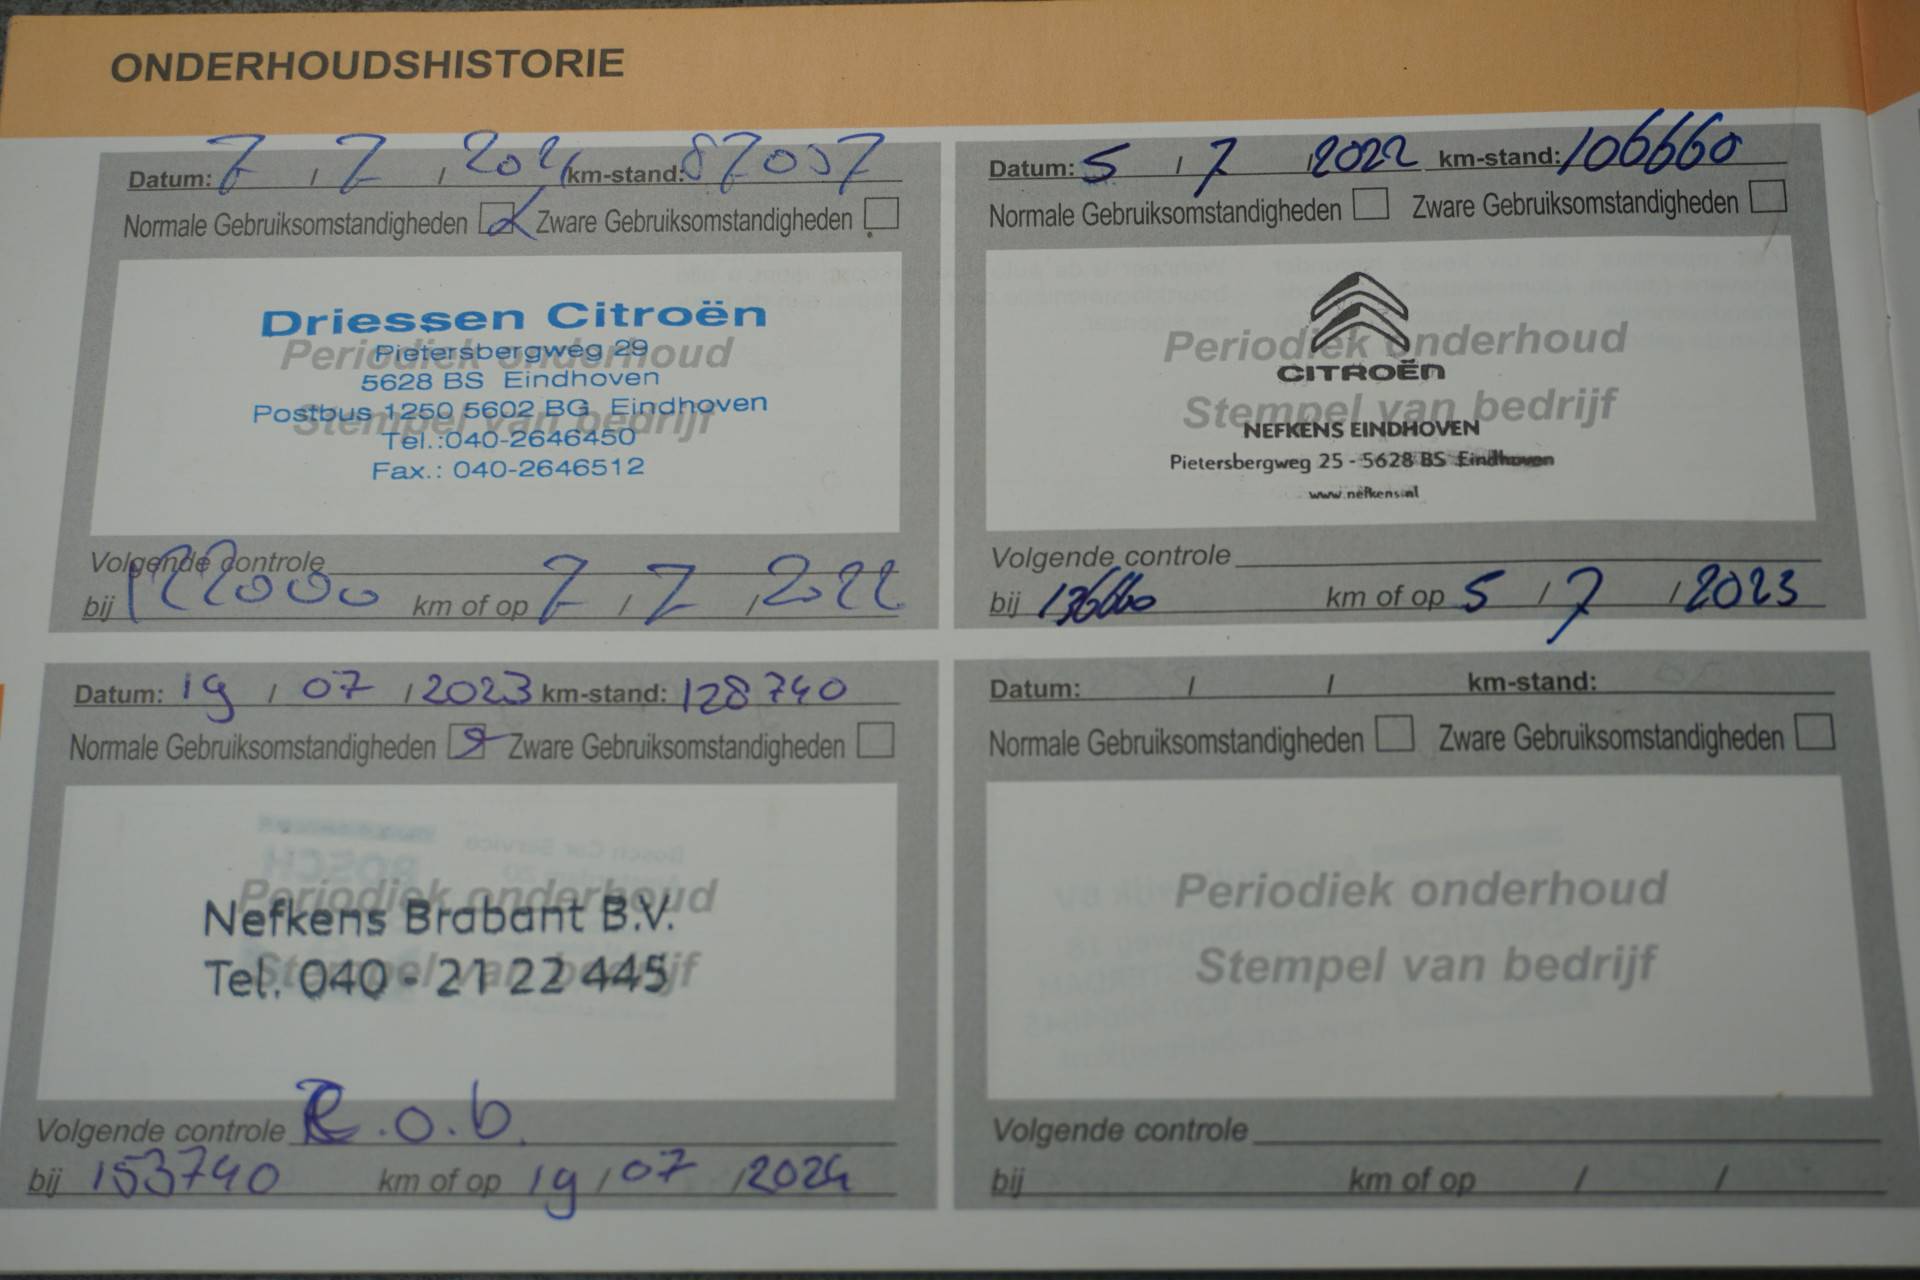 ONDERHOUDSHISTORIE
Datum: 7 / 7 / 2021 km-stand: 87057
Normale Gebruiksomstandigheden Zware Gebruiksomstandigheden
Periodiek onderhoud
Stempel van bedrijf
Driessen Citroën
Pietersbergweg 29
5628 BS Eindhoven
Postbus 1250 5602 BG Eindhoven
Tel.:040-2646450
Fax.: 040-2646512
Volgende controle
bij 122000 km of op 7 / 7 / 2022
Datum: 5 / 7 / 2022 km-stand: 106660
Normale Gebruiksomstandigheden Zware Gebruiksomstandigheden
Periodiek onderhoud
Stempel van bedrijf
CITROËN
NEFKENS EINDHOVEN
Pietersbergweg 25 - 5628 BS Eindhoven
www.nefkens.nl
Volgende controle
bij 136660 km of op 5 / 7 / 2023
Datum: 19 / 07 / 2023 km-stand: 128740
Normale Gebruiksomstandigheden Zware Gebruiksomstandigheden
Periodiek onderhoud
Stempel van bedrijf
Nefkens Brabant B.V.
Tel. 040 - 21 22 445
Volgende controle R.o.b.
bij 153740 km of op 19 / 07 / 2024
Datum: / / km-stand:
Normale Gebruiksomstandigheden Zware Gebruiksomstandigheden
Periodiek onderhoud
Stempel van bedrijf
Volgende controle
bij km of op / /